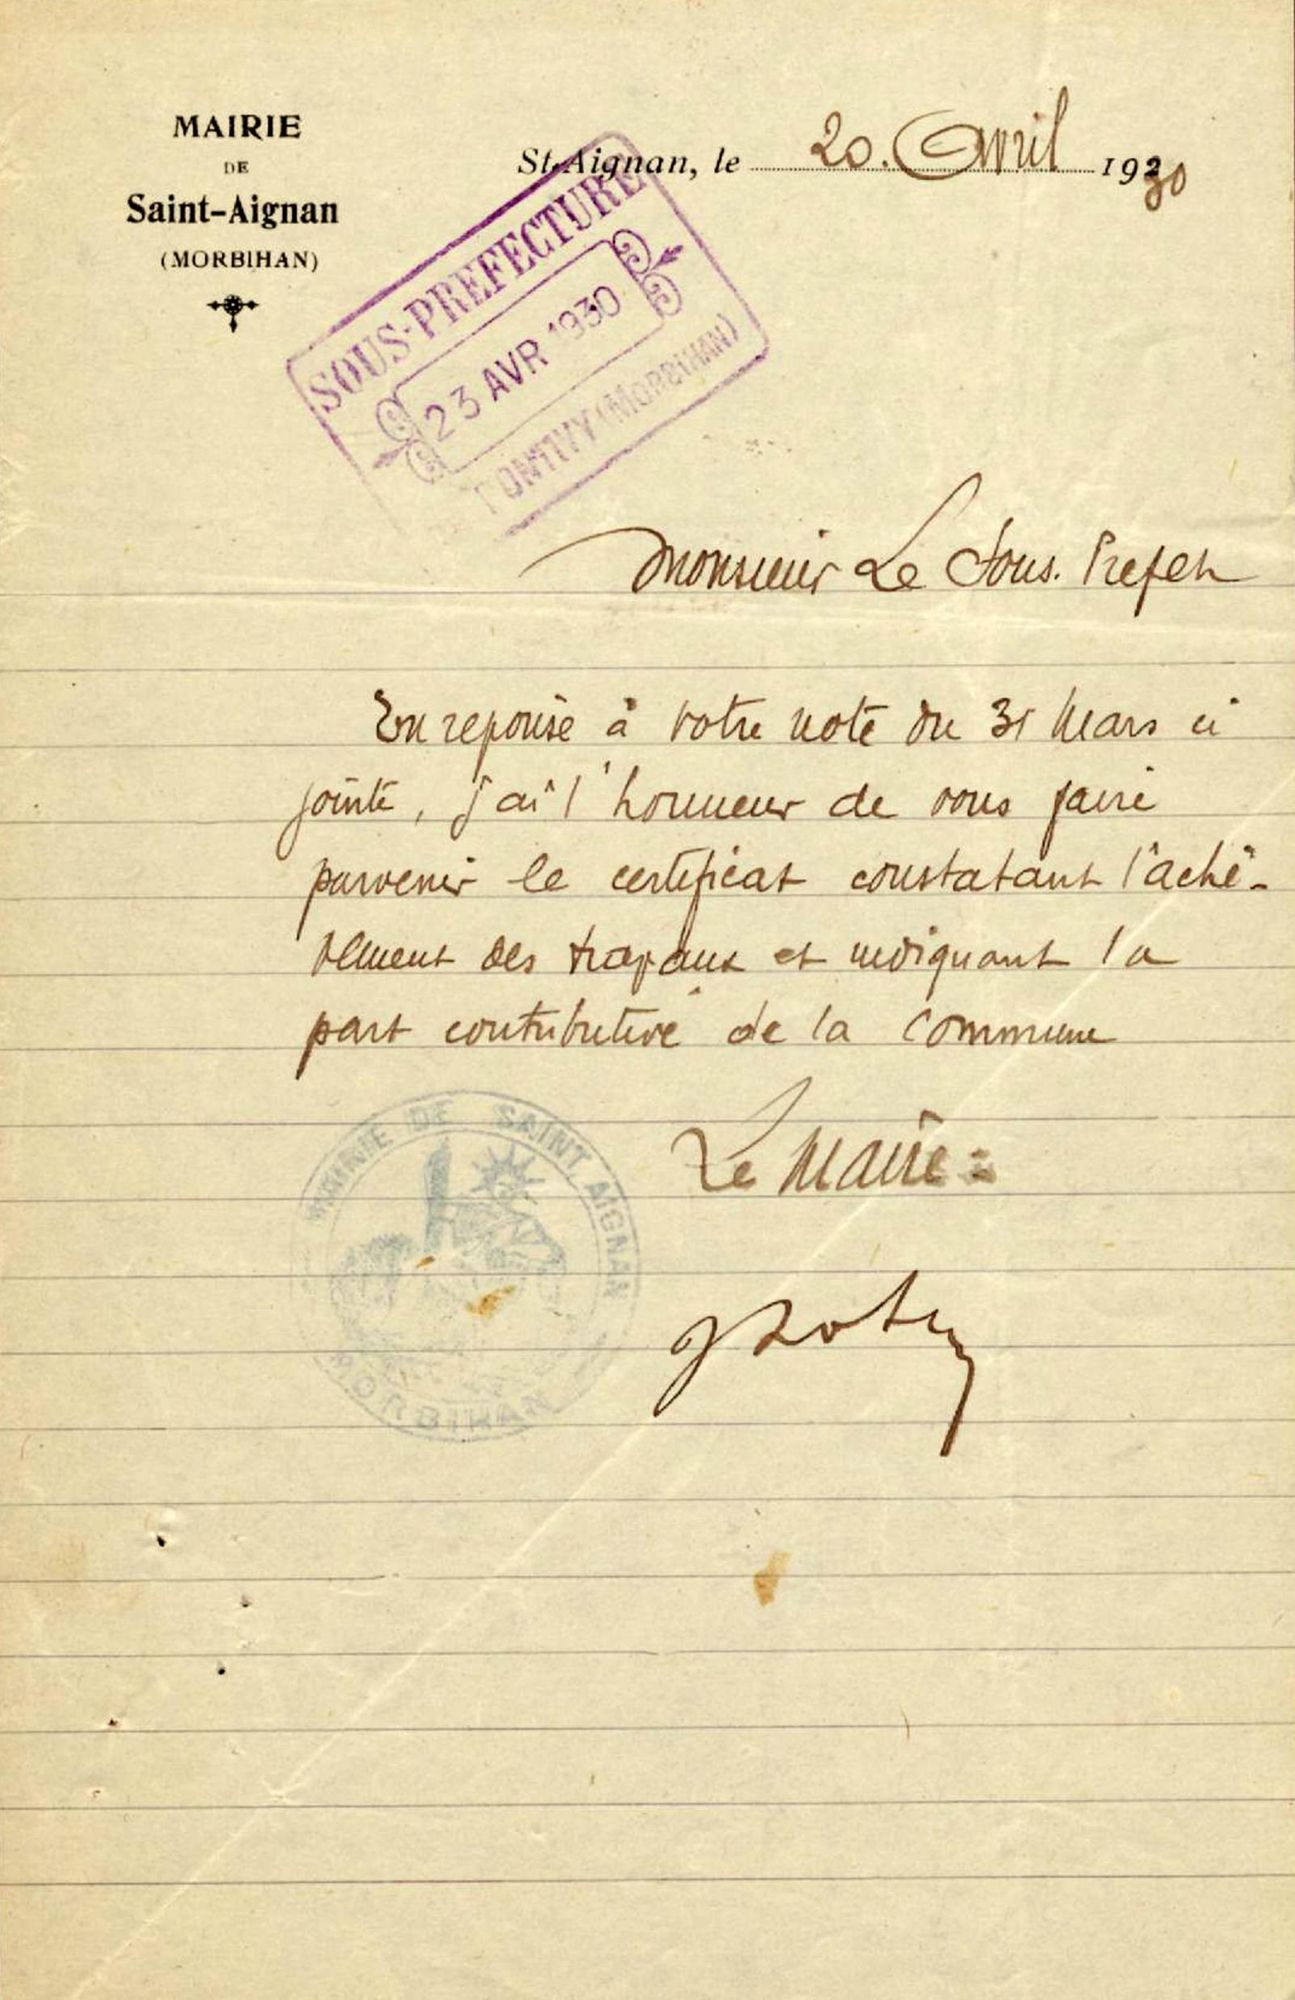 MAIRIE
DE
Saint-Aignan
(MORBIHAN)
St-Aignan, le 20. Avril 1930
SOUS-PREFECTURE
23 AVR 1930
PONTIVY (MORBIHAN)
Monsieur Le Sous. Prefet
En reponse à votre note du 31 Mars ci
jointe, j'ai l'honneur de vous faire
parvenir le certificat constatant l'achè-
vement des travaux et indiquant la
part contributive de la Commune
Le Maire =
MAIRIE DE SAINT AIGNAN
MORBIHAN